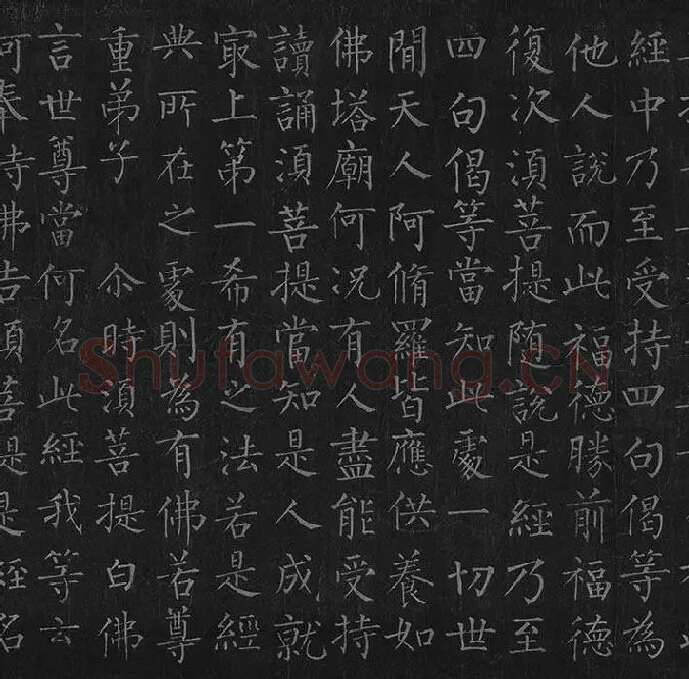 經中乃至受持四句偈等為
他人說而此福德勝前福德
復次湏菩提随說是經乃至
四句偈等當知此處一切世
間天人阿脩羅皆應供養如
佛塔廟何況有人盡能受持
讀誦湏菩提當知是人成就
冣上第一希有之法若是經
典所在之處則為有佛若尊
重弟子 尒時湏菩提白佛
言世尊當何名此經我等云
何奉持佛告湏菩提是經名
Shufawang.CN